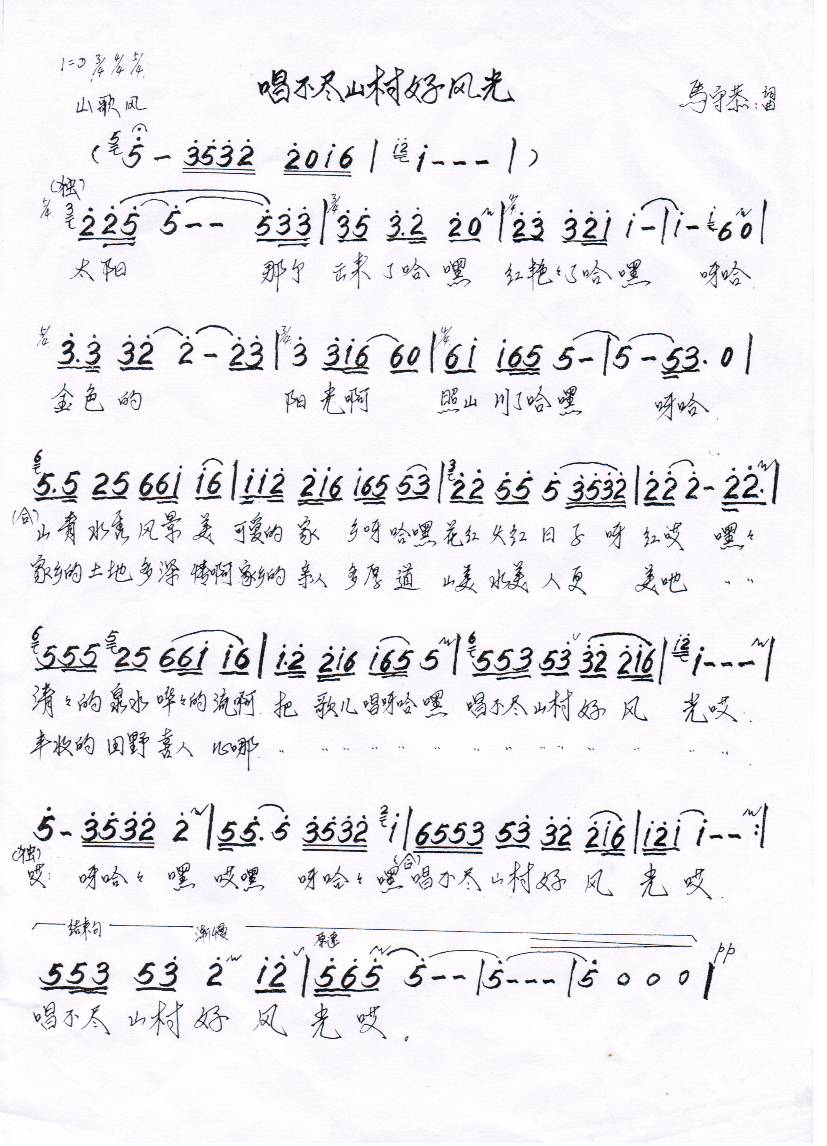 唱不尽山村好风光
1=D 3/4 4/4 5/4
山歌风
馬守恭:
( 5 - 3532 2016 | i - - - | )
(独) 2 25 5 - - 533 | 35 3.2 20 | 23 321 i - | i - 60 |
太阳 那个 出来了哈嘿 红艳々了哈嘿 呀哈
3.3 32 2 - 23 | 3 316 60 | 6i i65 5 - | 5 - 53. 0 |
金色的 阳光啊 照山川了哈嘿 呀哈
5.5 25 66i i6 | ii2 2i6 i65 53 | 22 55 5 3532 | 22 2 - 22. |
(合) 山青水秀风景美 可爱的家 乡呀哈嘿花红火红日子呀红哎 嘿々
家乡的土地多深情啊家乡的亲人多厚道 山美水美人更 美吔 〃 〃
555 25 66i i6 | i.2 2i6 i65 5 | 5553 53 32 2i6 | i - - - |
清々的泉水哗々的流啊 把歌儿唱呀哈嘿 唱不尽山村好风 光哎
丰收的田野喜人心哪 〃 〃 〃 〃 〃 〃 〃 〃 〃 〃 〃 〃 〃
5 - 3532 2 | 55. 5 3532 i | 6553 53 32 2i6 | i2i i - - :|
(独) 哎: 呀哈々嘿 哎嘿 呀哈々嘿 (合) 唱不尽山村好风 光哎
结束句 渐慢 原速 pp
553 53 2 i2 | 565 5 - - | 5 - - - | 5 0 0 0 |
唱不尽山村好风光哎。